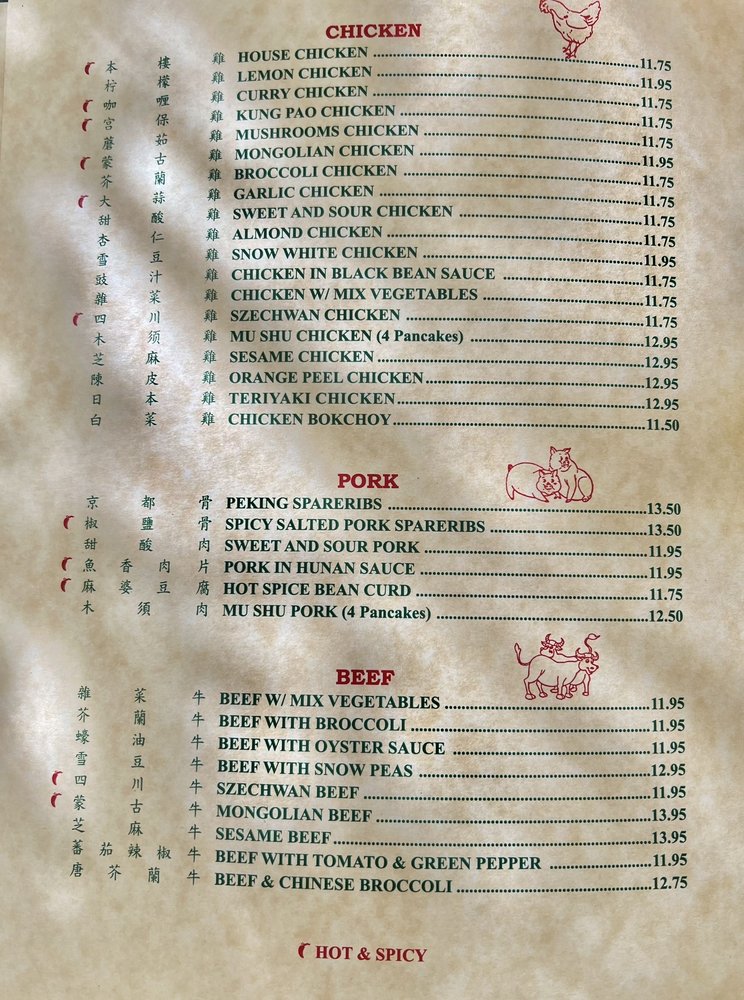 CHICKEN
本樓雞 HOUSE CHICKEN 11.75
柠檬雞 LEMON CHICKEN 11.95
咖喱雞 CURRY CHICKEN 11.75
宮保雞 KUNG PAO CHICKEN 11.75
蘑茹雞 MUSHROOMS CHICKEN 11.75
蒙古雞 MONGOLIAN CHICKEN 11.95
芥蘭雞 BROCCOLI CHICKEN 11.75
大蒜雞 GARLIC CHICKEN 11.75
甜酸雞 SWEET AND SOUR CHICKEN 11.75
杏仁雞 ALMOND CHICKEN 11.75
雪豆雞 SNOW WHITE CHICKEN 11.95
豉汁雞 CHICKEN IN BLACK BEAN SAUCE 11.75
雜菜雞 CHICKEN W/ MIX VEGETABLES 11.75
四川雞 SZECHWAN CHICKEN 11.75
木須雞 MU SHU CHICKEN (4 Pancakes) 12.95
芝麻雞 SESAME CHICKEN 12.95
陳皮雞 ORANGE PEEL CHICKEN 12.95
日本雞 TERIYAKI CHICKEN 12.95
白菜雞 CHICKEN BOKCHOY 11.50
PORK
京都骨 PEKING SPARERIBS 13.50
椒鹽骨 SPICY SALTED PORK SPARERIBS 13.50
甜酸肉 SWEET AND SOUR PORK 11.95
魚香肉片 PORK IN HUNAN SAUCE 11.95
麻婆豆腐 HOT SPICE BEAN CURD 11.75
木須肉 MU SHU PORK (4 Pancakes) 12.50
BEEF
雜菜牛 BEEF W/ MIX VEGETABLES 11.95
芥蘭牛 BEEF WITH BROCCOLI 11.95
蠔油牛 BEEF WITH OYSTER SAUCE 11.95
雪豆牛 BEEF WITH SNOW PEAS 12.95
四川牛 SZECHWAN BEEF 11.95
蒙古牛 MONGOLIAN BEEF 13.95
芝麻牛 SESAME BEEF 13.95
蕃茄辣椒牛 BEEF WITH TOMATO & GREEN PEPPER 11.95
唐芥蘭牛 BEEF & CHINESE BROCCOLI 12.75
HOT & SPICY